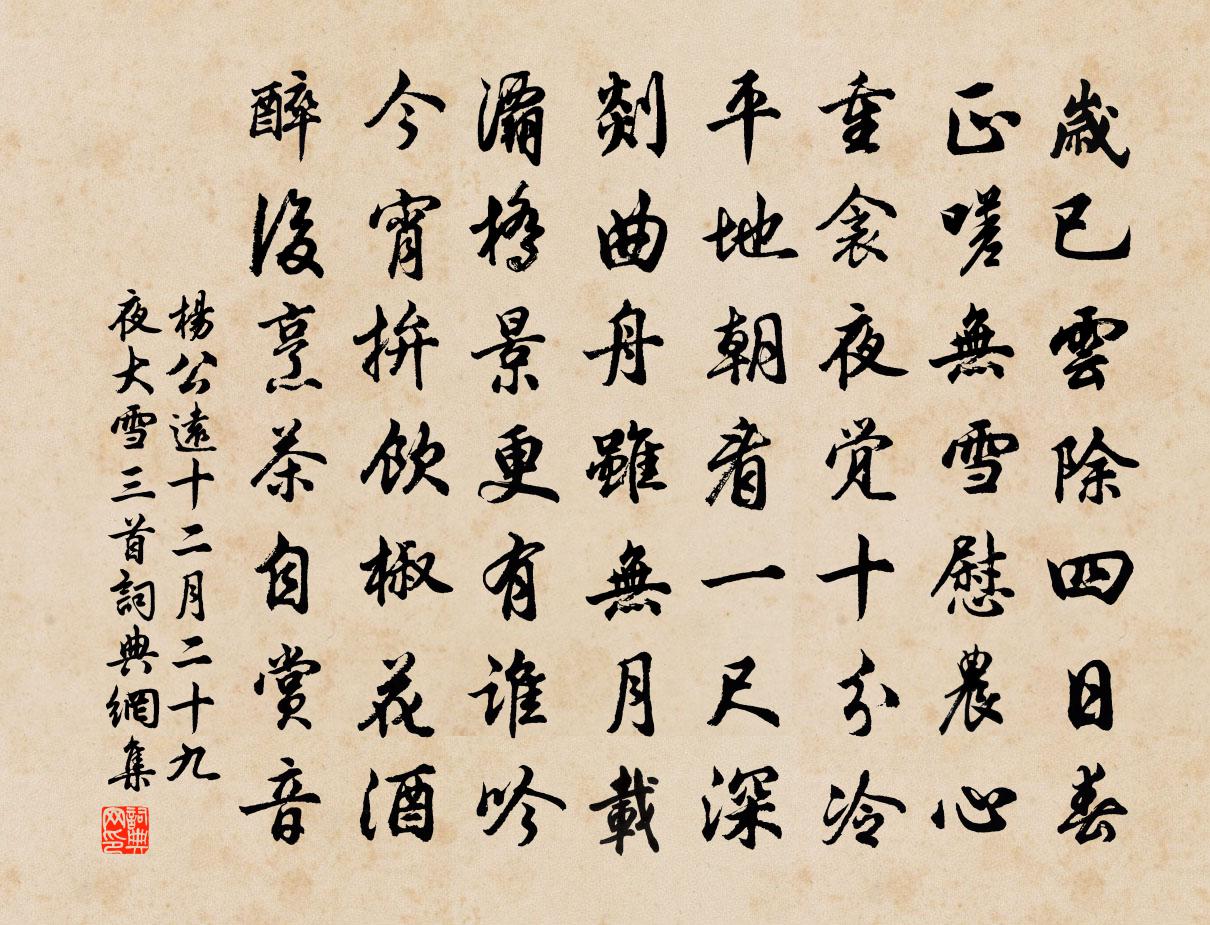 歲已雲除四日春
正嗟無雪慰農心
重衾夜覺十分冷
平地朝看一尺深
剡曲舟雖無月載
灞橋景更有誰吟
今宵拚飲椒花酒
醉後烹茶自賞音
楊公遠十二月二十九
夜大雪三首詞典網集
詞典
网印